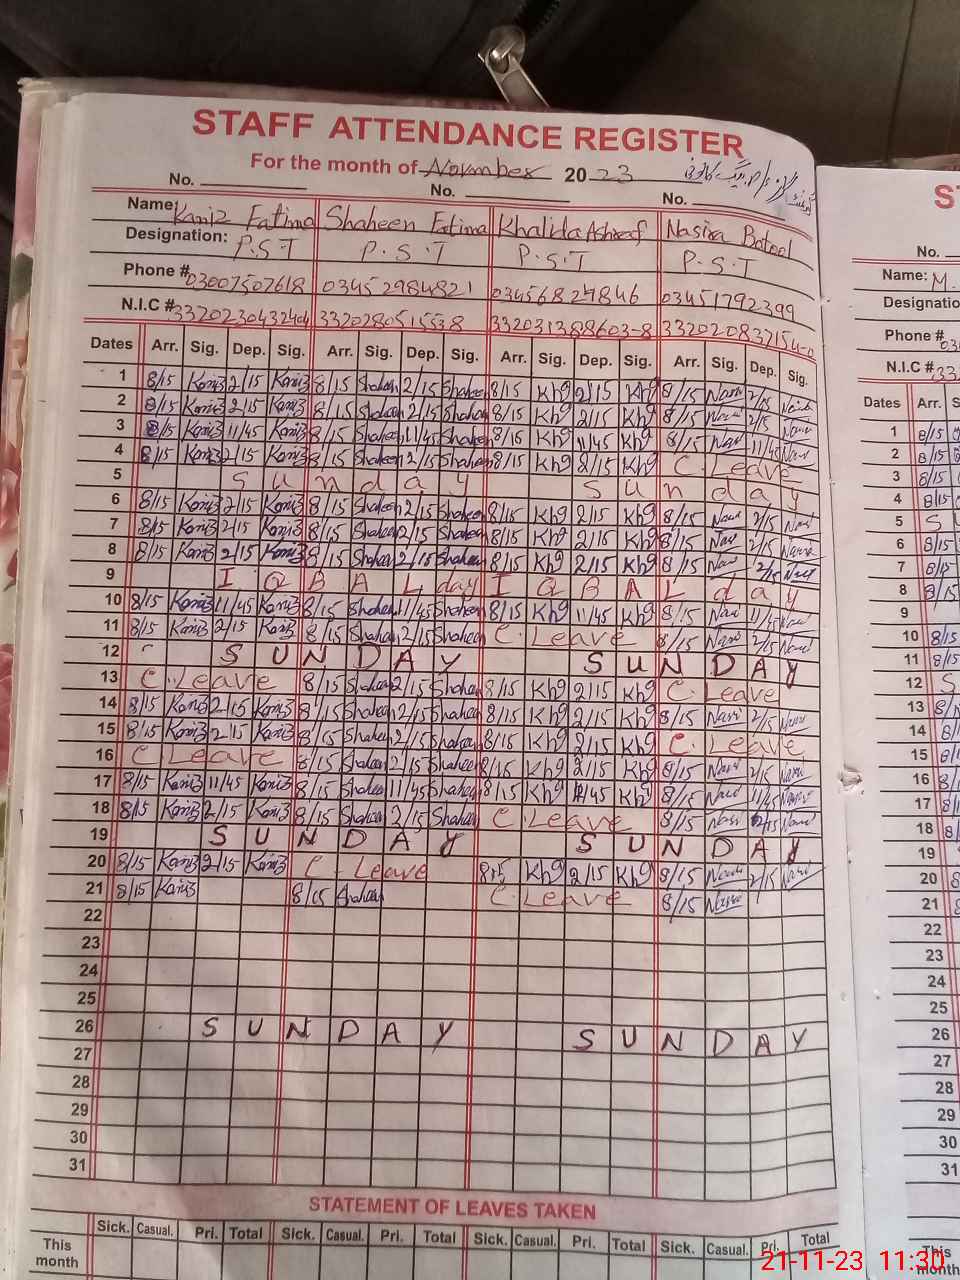 STAFF ATTENDANCE REGISTER
For the month of November 2023
No. No. No.
Name: Kaniz Fatima Shaheen Fatima Khalida Ashraf Nasira Batool
Designation: P.S.T P.S.T P.S.T P.S.T
Phone # 03007507618 03452984821 03456827846 03451792399
N.I.C # 3320280515538 332031388603-8
Dates Arr. Sig. Dep. Sig. Arr. Sig. Dep. Sig. Arr. Sig. Dep. Sig. Arr. Sig. Dep. Sig.
1 8/15 Kaniz 2/15 Kaniz 8/15 Shaheen 2/15 Shaheen 8/15 Kh9 2/15 Kh9 8/15 2/15
2 8/15 Kaniz 2/15 Kaniz 8/15 Shaheen 2/15 Shaheen 8/15 Kh9 2/15 Kh9 8/15 2/15
3 8/15 Kaniz 11/45 Kaniz 8/15 Shaheen 11/45 Shaheen 8/15 Kh9 11/45 Kh9 8/15 11/45
4 8/15 Kaniz 2/15 Kaniz 8/15 Shaheen 2/15 Shaheen 8/15 Kh9 2/15 Kh9 C.Leave
5 Sunday Sunday
6 8/15 Kaniz 2/15 Kaniz 8/15 Shaheen 2/15 Shaheen 8/15 Kh9 2/15 Kh9 8/15 2/15
7 8/15 Kaniz 2/15 Kaniz 8/15 Shaheen 2/15 Shaheen 8/15 Kh9 2/15 Kh9 8/15 2/15
8 8/15 Kaniz 2/15 Kaniz 8/15 Shaheen 2/15 Shaheen 8/15 Kh9 2/15 Kh9 8/15 2/15
9 IQBAL day IQBAL day
10 8/15 Kaniz 11/45 Kaniz 8/15 Shaheen 11/45 Shaheen 8/15 Kh9 11/45 Kh9 8/15 11/45
11 8/15 Kaniz 2/15 Kaniz 8/15 Shaheen 2/15 Shaheen C.Leave 8/15 2/15
12 SUNDAY SUNDAY
13 C.Leave 8/15 Shaheen 2/15 Shaheen 8/15 Kh9 2/15 Kh9 C.Leave
14 8/15 Kaniz 2/15 Kaniz 8/15 Shaheen 2/15 Shaheen 8/15 Kh9 2/15 Kh9 8/15 2/15
15 8/15 Kaniz 2/15 Kaniz 8/15 Shaheen 2/15 Shaheen 8/15 Kh9 2/15 Kh9 C.Leave
16 C Leave 8/15 Shaheen 2/15 Shaheen 8/15 Kh9 2/15 Kh9 8/15 2/15
17 8/15 Kaniz 11/45 Kaniz 8/15 Shaheen 11/45 Shaheen 8/15 Kh9 11/45 Kh9 8/15 11/45
18 8/15 Kaniz 2/15 Kaniz 8/15 Shaheen 2/15 Shaheen C.Leave 8/15 2/15
19 SUNDAY SUNDAY
20 8/15 Kaniz 2/15 Kaniz C.Leave 8/15 Kh9 2/15 Kh9 8/15 2/15
21 8/15 Kaniz 8/15 Shaheen C.Leave 8/15
22
23
24
25
26 SUNDAY SUNDAY
27
28
29
30
31
STATEMENT OF LEAVES TAKEN
Sick. Casual. Pri. Total Sick. Casual. Pri. Total Sick. Casual. Pri. Total Sick. Casual. Pri. Total
This month
No.
Name: M.
Designation
Phone #
N.I.C #
Dates Arr.
1 8/15
2 8/15
3 8/15
4 8/15
5 S
6 8/15
7 8/15
8 8/15
9
10 8/15
11 8/15
12 S
13
14
15
16
17
18
19
20
21
22
23
24
25
26
27
28
29
30
31
This month
21-11-23 11:30